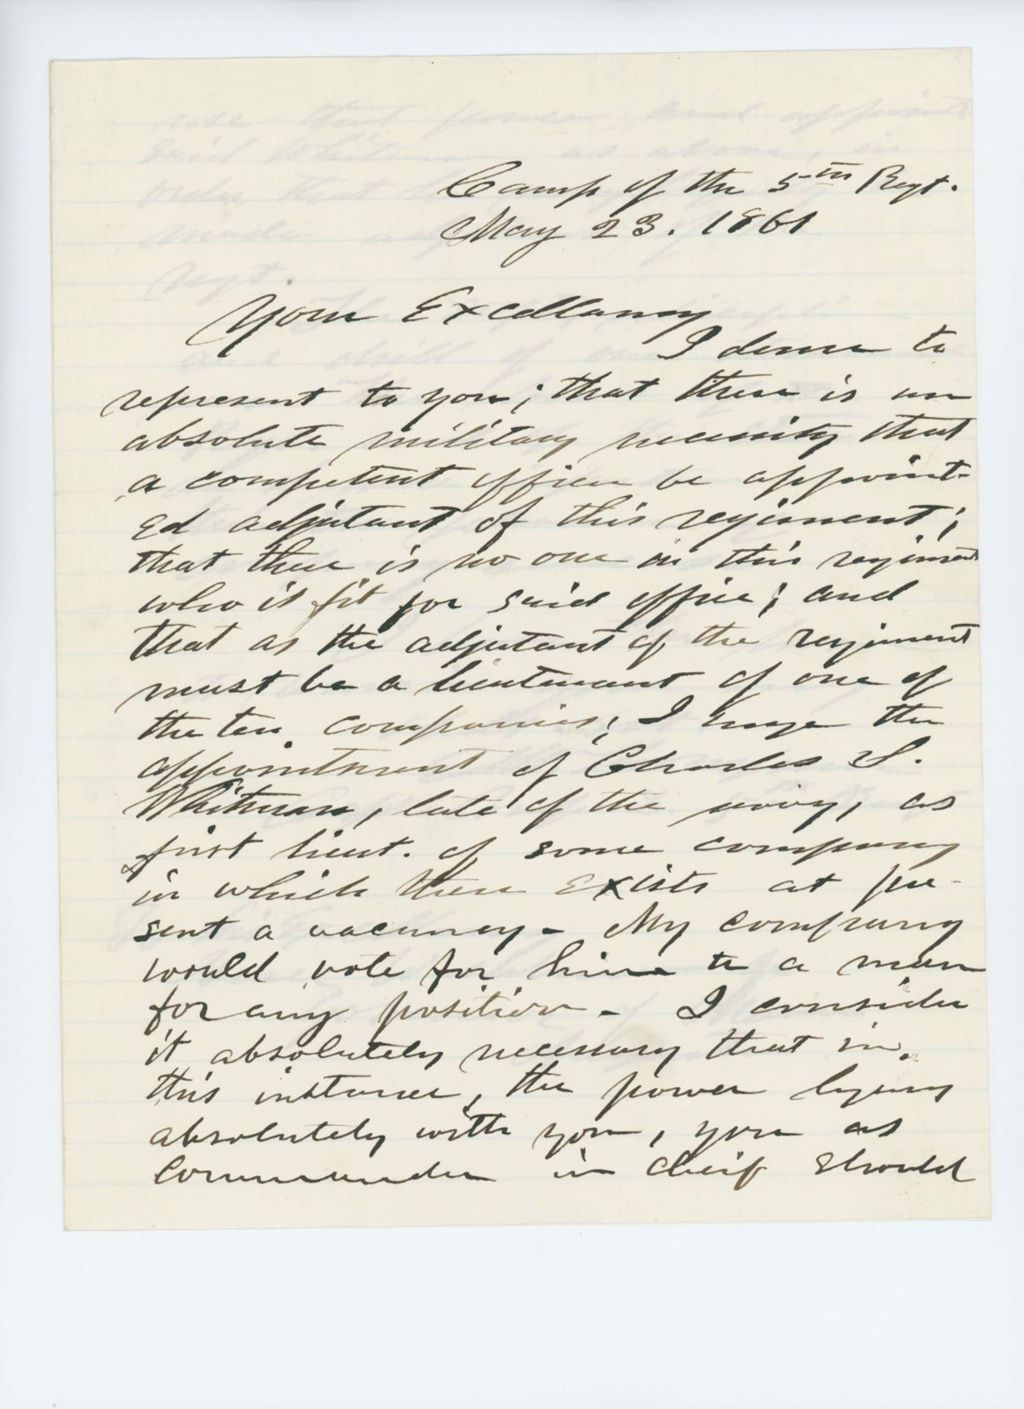 Camp of the 5th Regt.
May 23. 1861
Your Excellancy
I desire to
represent to you; that there is an
absolute military necessity that
a competent officer be appoint-
ed adjutant of this regiment;
that there is no one in this regiment
who is fit for said office; and
that as the adjutant of the regiment
must be a lieutenant of one of
the ten companies; I urge the
appointment of Charles S.
Whitman, late of the navy, as
first lieut. of some company
in which there exists at pre-
sent a vacancy - My company
would vote for him to a man
for any position - I consider
it absolutely necessary that in
this instance, the power lying
absolutely with you, you as
commander in cheif should